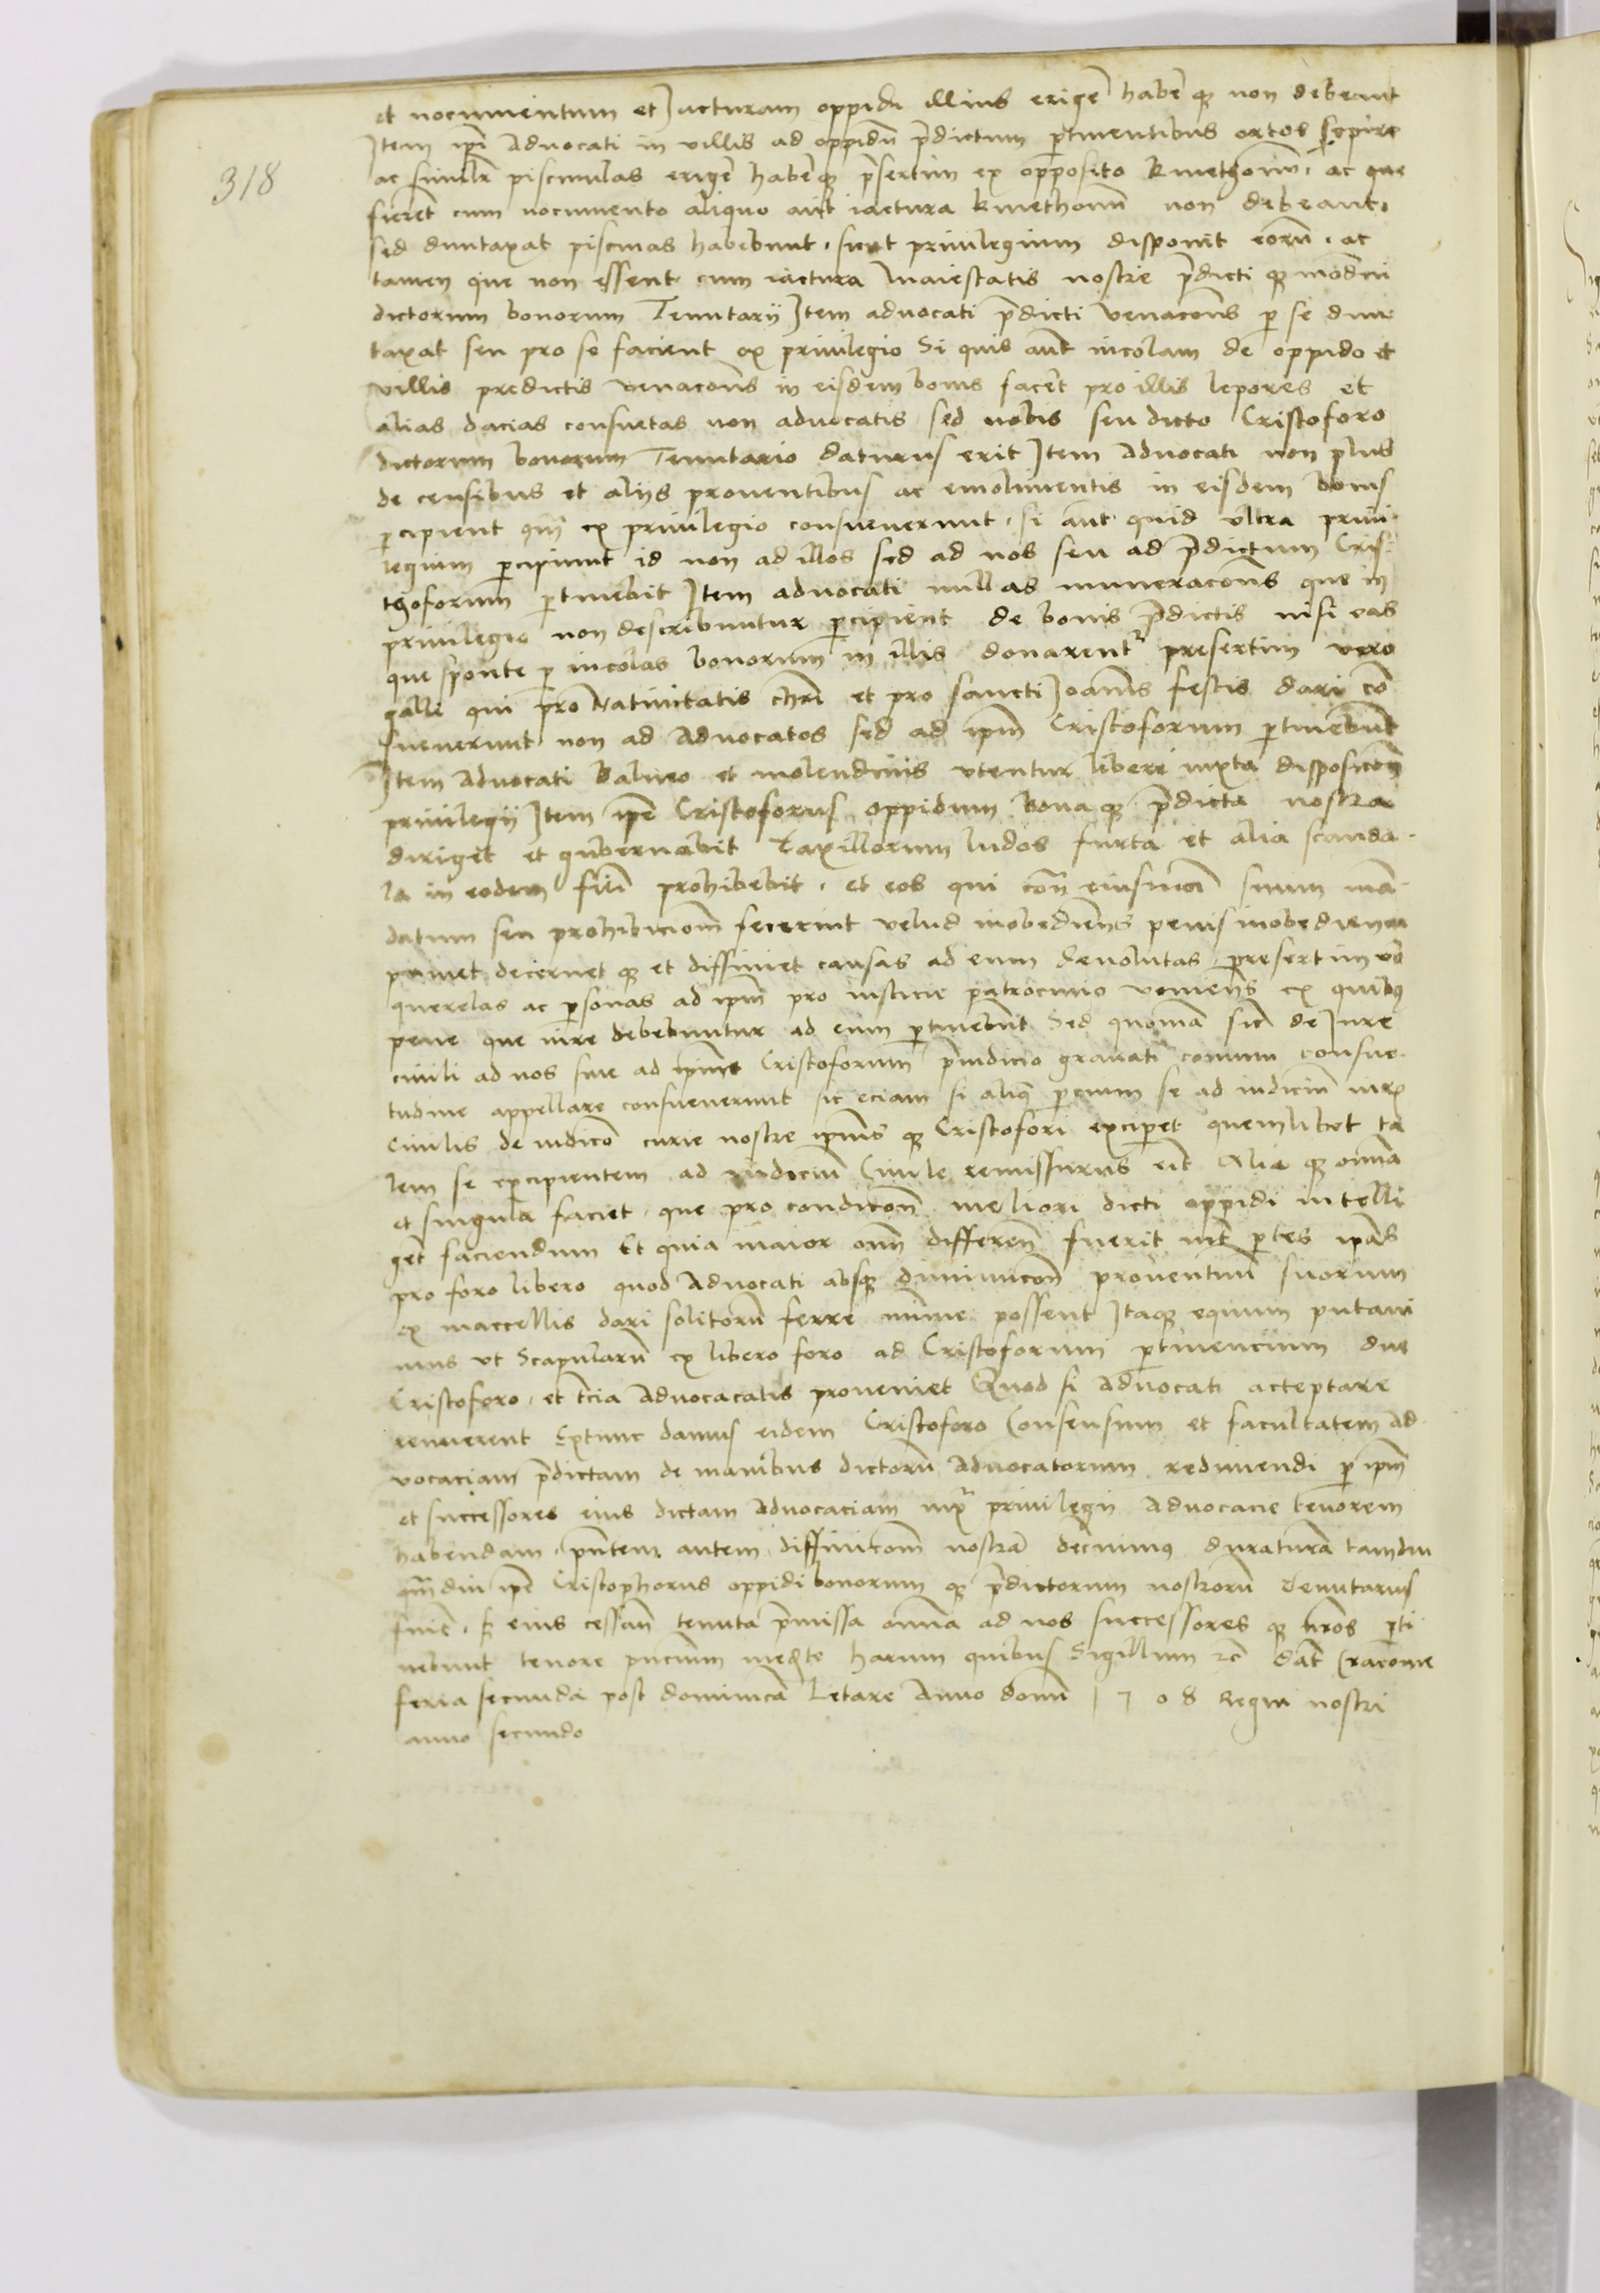 318
et nocumentum et Jacturam oppidi illius erigē habē qȝ non debeant
Item ipī Advocati in villis ad oppidū p̄dictum ptinentibus ortos sepire
ac similr piscinulas erigē habē qȝ p̄sertim ex opposito kmethonū. ac que
fierēt cum nocumento aliquo aut iactura kmethonū non debeant.
sed duntaxat piscinas habebunt. sicut privilegium disponit eorū. ac
tamen que non essent cum iactura Maiestatis nostre p̄dicti qȝ modrū
dictorum bonorum Tenutarii Item advocati p̄dicti venacōns p se dun
taxat seu pro se facient ex privilegio Si quis aut incolam de oppido et
villis predictis venacōns in eisdem bonis facēt pro illis lepores et
alias dacias consuetas non advocatis sed nobis seu dicto Cristoforo
dictorum bonorum Tenutario daturus erit Item Advocati non plus
de censibus et aliis proventibus ac emolumentis in eisdem bonis
pcipient qm̄ ex privilegio consueverunt. si aut quid ultra privi
legium pcipiunt id non ad illos sed ad nos seu ad p̄dictum Cris
thoforum ptinebit Item advocati nullas numeracōns que in
privilegio non describuntur pcipient de bonis p̄dictis nisi eas
que sponte p incolas bonorum in illis donarentr presertim vero
galli qui pro Nativitatis chri et pro sancti Joannis festis dari cō
sueverunt non ad Advocatos sed ad ipm̄ Cristoforum ptinebunt
Item Advocati balneo et molendinis utentur libere iuxta disposicōn
privilegii Item ipē Cristoforus oppidum bona qȝ p̄dicta nostra
diriget et gubernabit Taxillorum ludos furta et alia scanda
la in eodem fieri prohibebit. et eos qui con eiusmōi suum man
datum seu prohibiciom̄ fecerint velud inobediens penis inobediencia
puniet decernet qȝ et diffiniet causas ad eum devolutas presertim vō
querelas ac psonas ad ipm̄ pro iusticie patrocinio veniens ex quibȝ
pene que iure debebuntur ad eum ptinebūt Sed quoniā sic de Jure
civili ad nos sive ad ipum Cristoforum p̄iudicio gravati comuni consue
tudine appellare consueverunt sic eciam si aliqȝ parcium se ad iudiciū iurȝ
Civilis de iudicō curie nostre ipius qȝ Cristofori exciperet quemlibet ta
lem se excipientem ad iudiciū Civile remissurus erit Alia qȝ omnia
et singula faciet. que pro condicōn meliori dicti oppidi intelli
get faciendum Et quia maior omn̄ differen̄ fuerit int ptes ipas
pro foro libero quod Advocati absqȝ diminucōn proventuū suorum
ex maccellis dari solitorū ferre minime possent Itaqȝ equum putavi
mus ut Scapularū ex libero foro ad Cristoforum ptinencium due
Cristoforo. et tcia Advocacatis proveniet Quod si Advocati acceptare
renuerent Extunc damus eidem Cristoforo Consensum et facultatem ad
vocaciam p̄dictam de manibus dictorū Advocatorum redimendi p ipm̄
et successores eius dictam Advocaciam iuxȝ privilegii Advocacie tenorem
habendam. pn̄tem autem diffinicom̄ nostrā decrnimȝ duraturā tamdiu
qm̄diu ipē Cristophorus oppidi bonorum qȝ p̄dictorum nostrorū Tenutarius
fuit. eius cessan tenuta p̄missa omnia ad nos successores qȝ nros pti
nebunt tenore pn̄cium medᵗᵉ harum quibus Sigillum ec Dat Cracovie
feria secunda post dominicā Letare Anno domī 1 7 0 8 Regni nostri
anno secundo